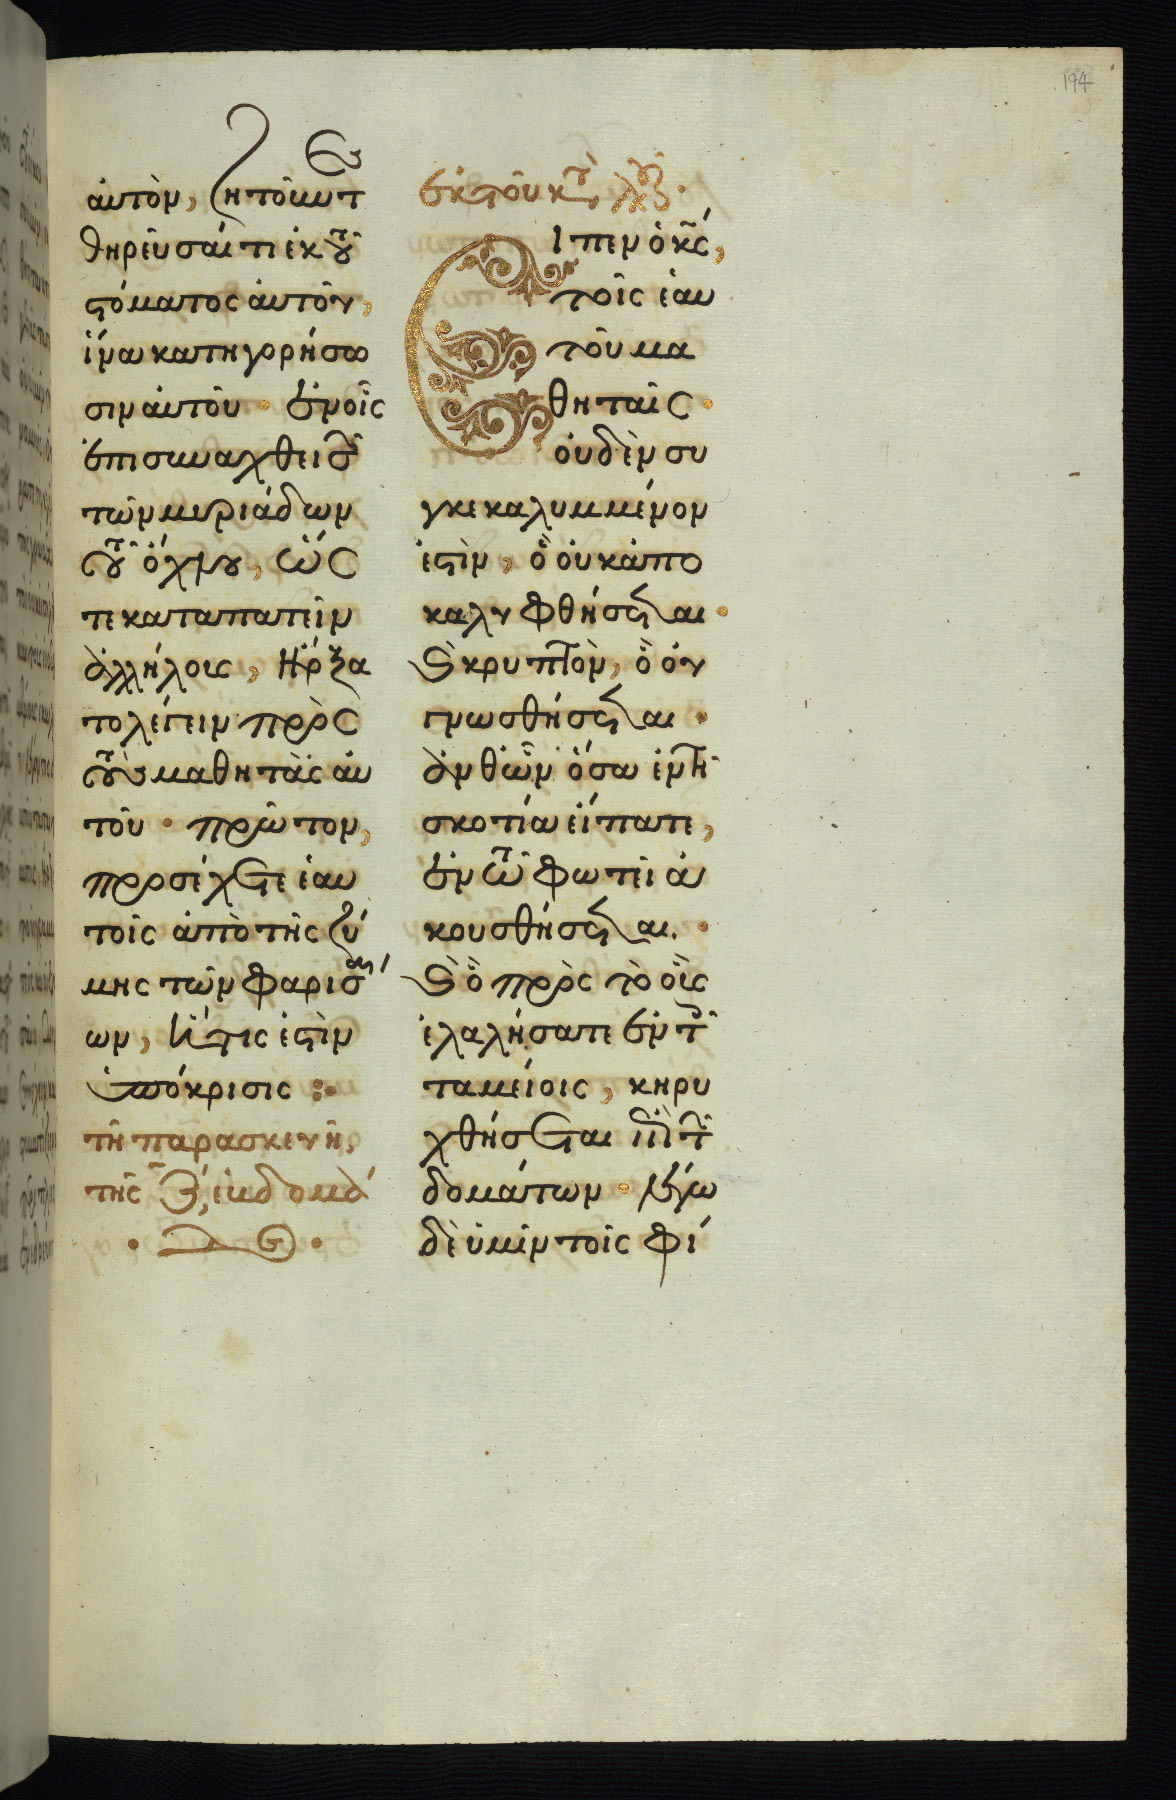 194
αὐτὸν, ζητοῦντες
θηρεῦσαί τι ἐκ τοῦ
στόματος αὐτοῦ,
ἵνα κατηγορήσω
σιν αὐτοῦ · ἐν οἷς
ἐπισυναχθεισῶν
τῶν μυριάδων
τοῦ ὄχλου, ὥς
τε καταπατεῖν
ἀλλήλους, ἤρξα
το λέγειν πρὸς
τοὺς μαθητὰς αὐ
τοῦ · πρῶτον,
προσέχετε ἑαυ
τοῖς ἀπὸ τῆς ζύ
μης τῶν φαρισαί
ων, ἥτις ἐστὶν
ὑπόκρισις :·
τῆ παρασκευῆ,
τῆς ἑβδομά
ἐκ τοῦ κατὰ λουκᾶν ·
Εἶπεν ὁ κς,
τοῖς ἑαυ
τοῦ μα
θηταῖς ·
οὐδὲν συ
γκεκαλυμμένον
ἐστὶν, ὃ οὐκ ἀπο
καλυφθήσεται ·
καὶ κρυπτὸν, ὃ οὐ
γνωσθήσεται ·
ἀνθὧν ὅσα ἐν τῆ
σκοτία εἴπατε,
ἐν τῶ φωτὶ ἀ
κουσθήσεται. ·
καὶ ὃ πρὸς τὸ οὖς
ἐλαλήσατε ἐν τοῖς
ταμείοις, κηρυ
χθήσεται ἐπὶ τῶν
δομάτων · λέγω
δὲ ὑμῖν τοῖς φί